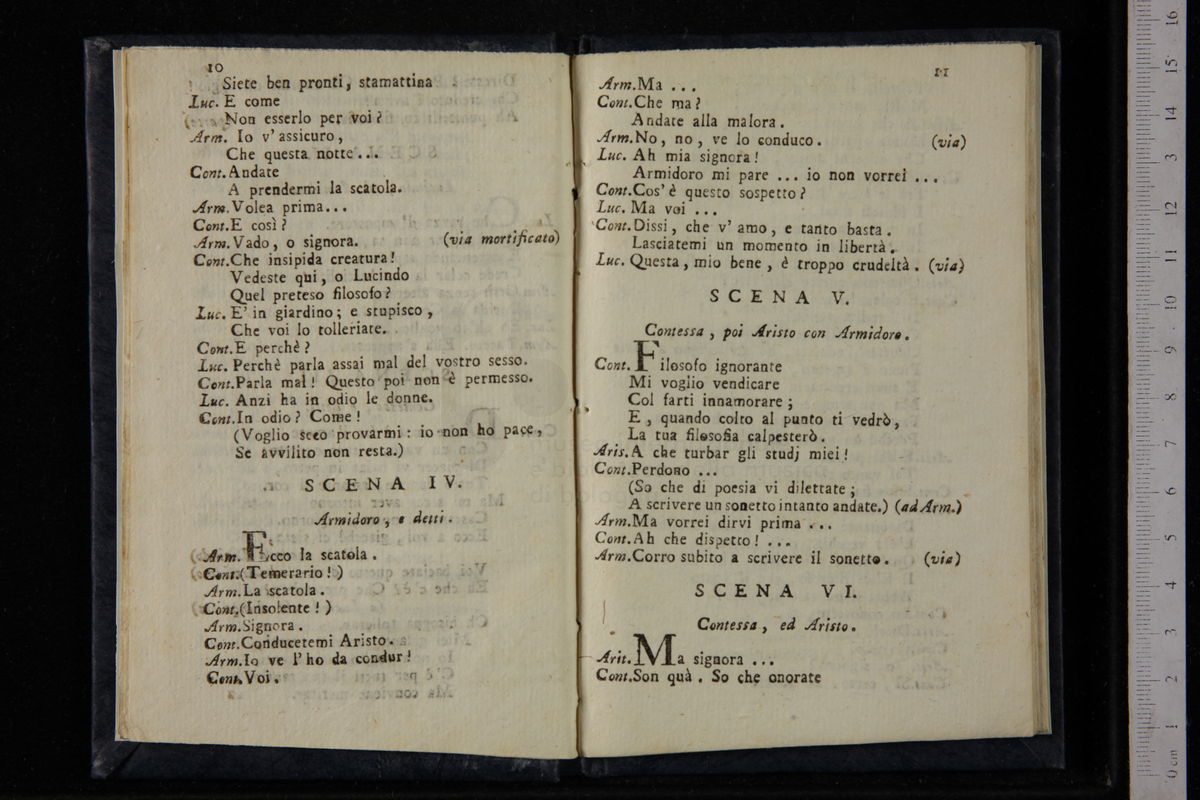 10
Siete ben pronti, stamattina
Luc. E come
Non esserlo per voi?
Arm. Io v' assicuro,
Che questa notte...
Cont. Andate
A prendermi la scatola.
Arm. Volea prima...
Cont. E così?
Arm. Vado, o signora. (via mortificato)
Cont. Che insipida creatura!
Vedeste qui, o Lucindo
Quel preteso filosofo?
Luc. E' in giardino; e stupisco,
Che voi lo tolleriate.
Cont. E perchè?
Luc. Perchè parla assai mal del vostro sesso.
Cont. Parla mal! Questo poi non è permesso.
Luc. Anzi ha in odio le donne.
Cont. In odio? Come!
(Voglio seco provarmi: io non ho pace,
Se avvilito non resta.)
SCENA IV.
Armidoro, e detti.
Arm. Ecco la scatola.
Cont. (Temerario!)
Arm. La scatola.
Cont. (Insolente!)
Arm. Signora.
Cont. Conducetemi Aristo.
Arm. Io ve l' ho da condur!
Cont. Voi.
11
Arm. Ma ...
Cont. Che ma?
Andate alla malora.
Arm. No, no, ve lo conduco. (via)
Luc. Ah mia signora!
Armidoro mi pare ... io non vorrei ...
Cont. Cos' è questo sospetto?
Luc. Ma voi ...
Cont. Dissi, che v' amo, e tanto basta.
Lasciatemi un momento in libertà.
Luc. Questa, mio bene, è troppo crudeltà. (via)
SCENA V.
Contessa, poi Aristo con Armidoro.
Cont. Filosofo ignorante
Mi voglio vendicare
Col farti innamorare;
E, quando colto al punto ti vedrò,
La tua filosofia calpesterò.
Aris. A che turbar gli studj miei!
Cont. Perdono ...
(So che di poesia vi dilettate;
A scrivere un sonetto intanto andate.) (ad Arm.)
Arm. Ma vorrei dirvi prima ...
Cont. Ah che dispetto! ...
Arm. Corro subito a scrivere il sonetto. (via)
SCENA VI.
Contessa, ed Aristo.
Arit. Ma signora ...
Cont. Son quà. So che onorate